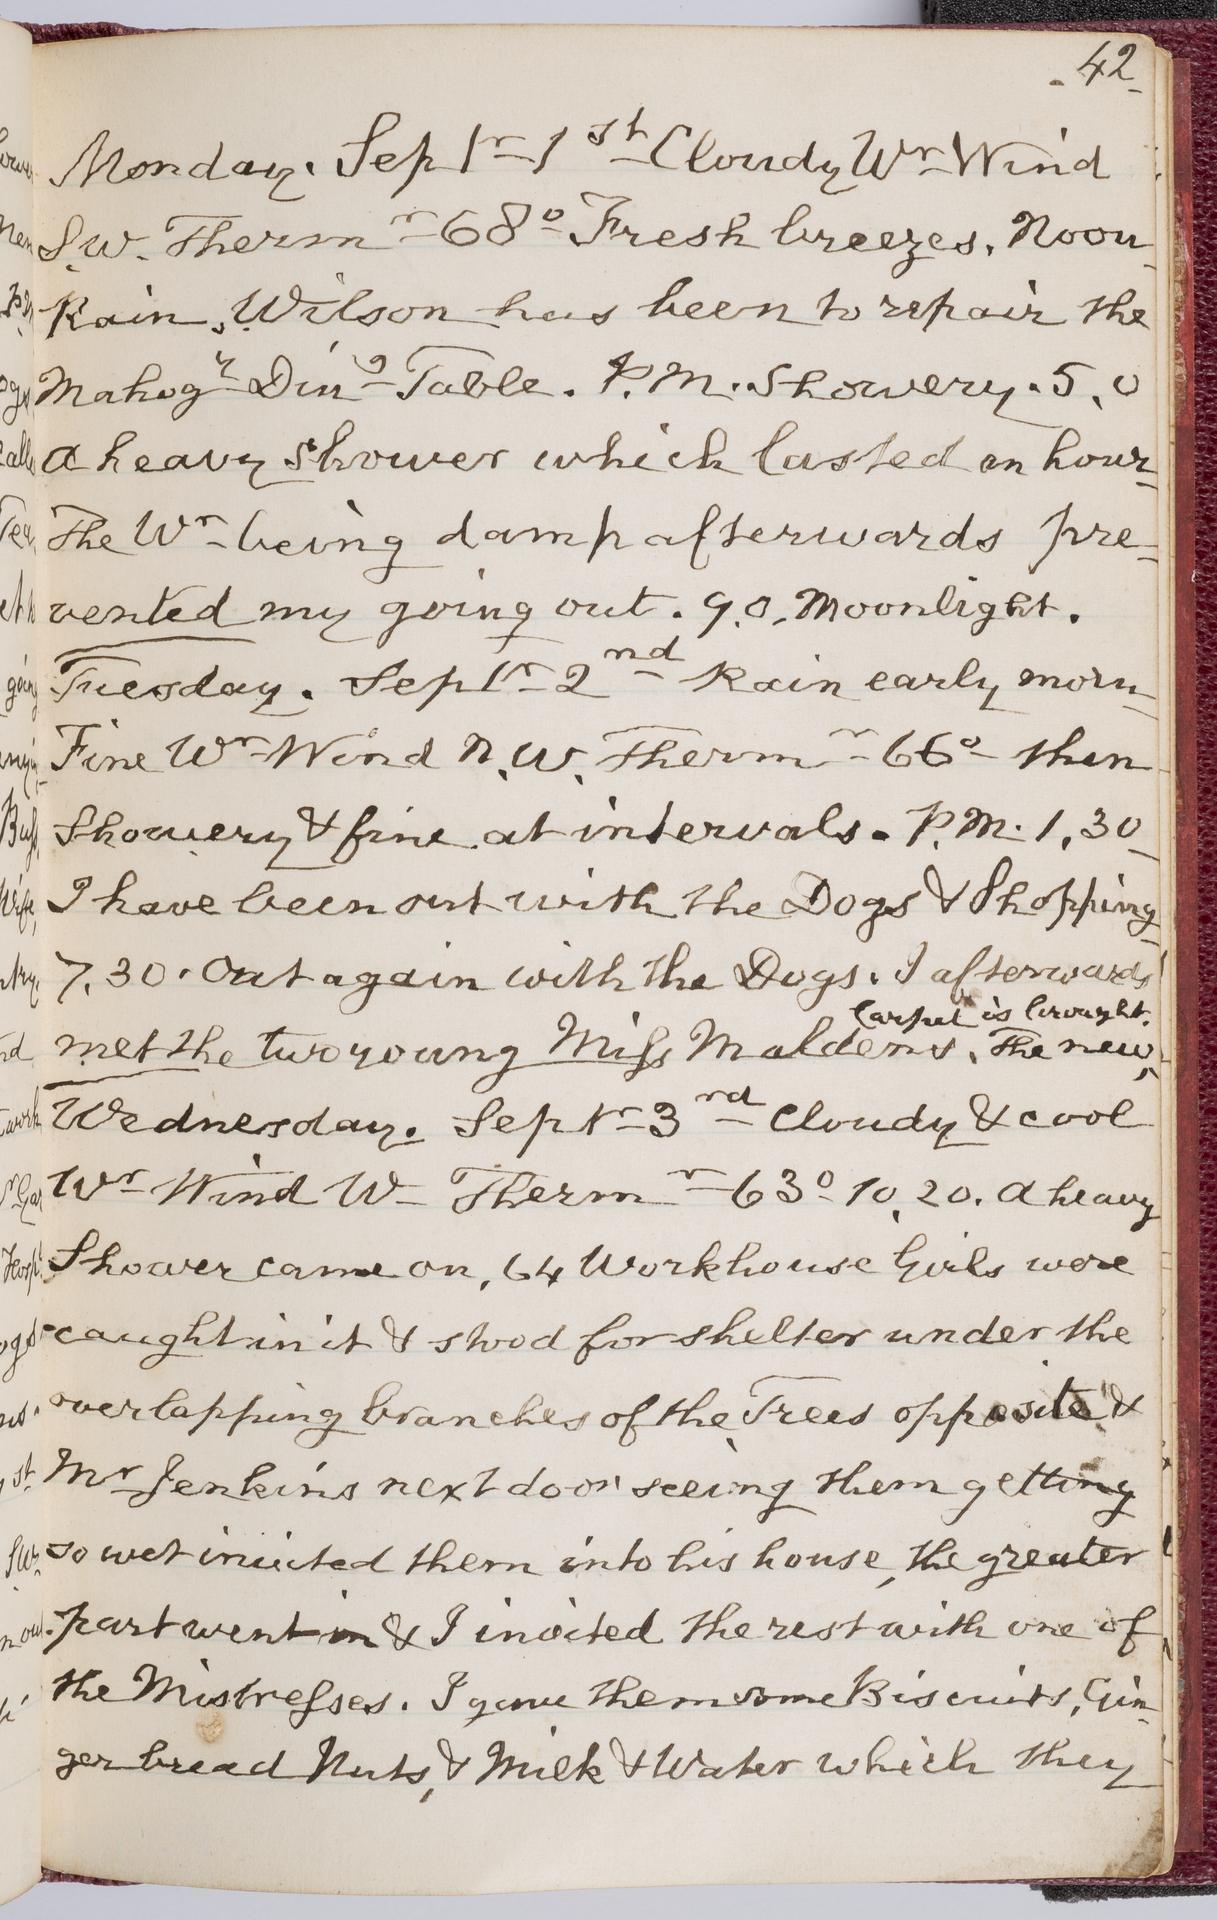 42
Monday. Septr 1st Cloudy Wr Wind
S.W. Thermr 68° Fresh breezes. Noon
Rain, Wilson has been to repair the
Mahogy Ding Table. P.M. Showery. 5,0
a heavy Shower which lasted an hour
The Wr being damp afterwards pre-
vented my going out. 9.0, Moonlight.
Tuesday. Septr 2nd Rain early morn
Fine Wr Wind N.W. Thermr 66° then
Showery & fine at intervals. P.M. 1,30
I have been out with the Dogs & Shopping
7,30. Out again with the Dogs. I afterwards
met the two young Miss Maldens. The new
Carpet is brought.
Wednesday. Septr 3rd Cloudy & cool
Wr Wind W Thermr 63° 10,20. a heavy
Shower came on, 64 Workhouse Girls were
caught in it & stood for shelter under the
overlapping branches of the Trees opposite &
Mr Jenkins next door seeing them getting
so wet invited them into his house, the greater
part went in & I invited the rest with one of
the Mistresses. I gave them some Biscuits, Gin-
ger bread Nuts, & Milk & Water which they